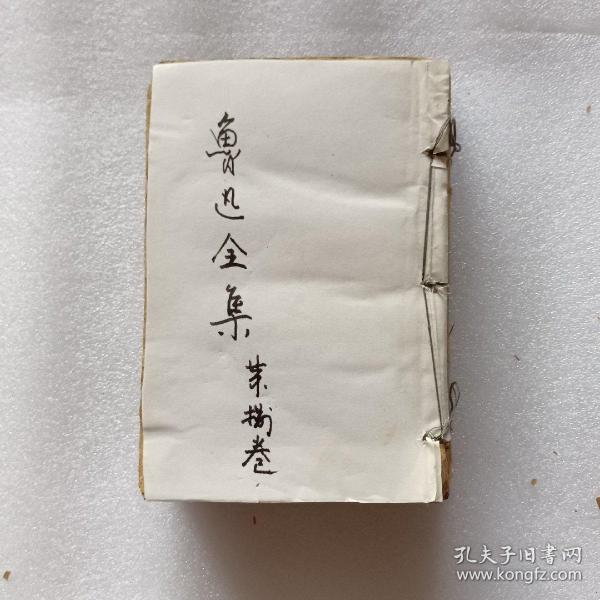 魯迅全集
第捌卷
孔夫子旧书网
www.kongfz.com